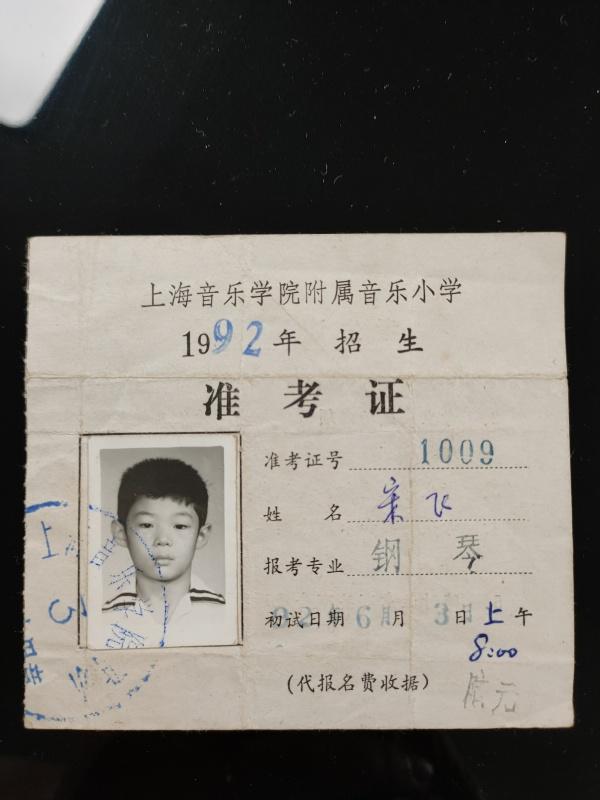 上海音乐学院附属音乐小学
1992年 招生
准考证
准考证号 1009
姓名 宋飞
报考专业 钢琴
初试日期 92年6月3日上午
8:00
(代报名费收据) 元